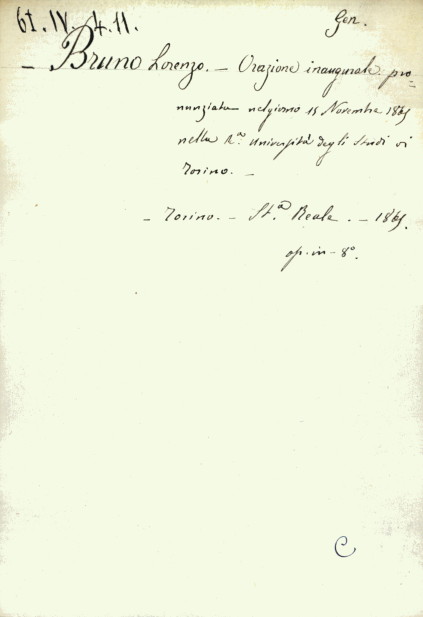 61. IV. 4. 11.
Gen.
- Bruno Lorenzo. - Orazione inaugurale pro=
nunziata nel giorno 15 Novembre 1865
nella R.ª Università degli Studi di
Torino. -
- Torino. - St.ª Reale. - 1865.
op. in - 8°.
C